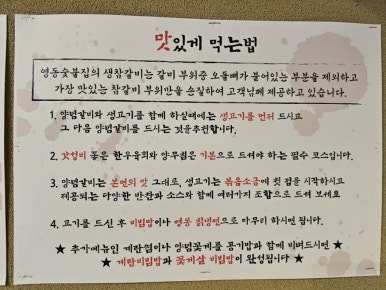 맛있게 먹는법
영동숯불집의 생참갈비는 갈비 부위중 오돌뼈가 붙어있는 부분을 제외하고
가장 맛있는 참갈비 부위만을 손질하여 고객님께 제공하고 있습니다.
1. 양념갈비와 생고기를 함께 하실때에는 생고기를 먼저 드시고
그 다음 양념갈비를 드시는 것을추천합니다.
2. 갓성비 좋은 한우육회와 양무침은 기본으로 드셔야 하는 필수 코스입니다.
3. 양념갈비는 본연의 맛 그대로, 생고기는 볶음소금에 첫 점을 시작하시고
제공되는 다양한 반찬과 소스와 함께 여러가지 조합으로 드셔 보세요
4. 고기를 드신 후 비빔밥이나 영동 칡냉면으로 마무리 하시면 됩니다.
★ 추가메뉴인 계란찜이나 양념꽃게를 공기밥과 함께 비벼드시면 ★
★ 계란비빔밥과 꽃게살 비빔밥이 완성됩니다 ★